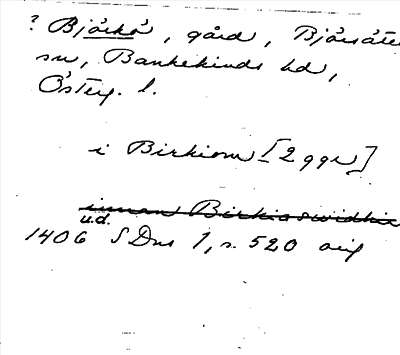 ? Björkö, gård, Bjärsäter
sn, Bankekinds hd,
Österg. l.
i Birkiom [2 ggr]
innan Birkiaswidhie
u.d.
1406 SDns 1, s. 520 avs